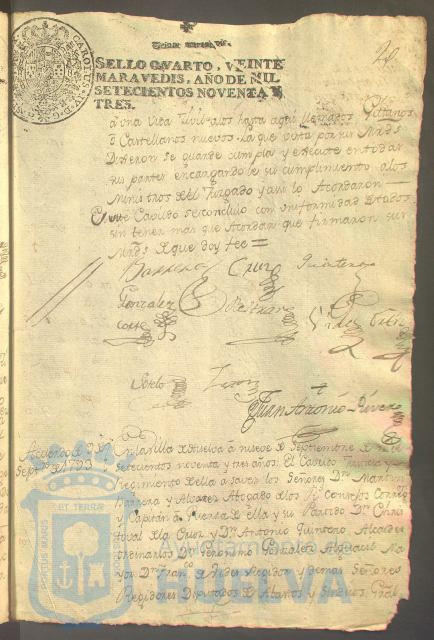 SELLO QVARTO, VEINTE
MARAVEDIS, AÑO DE MIL
SETECIENTOS NOVENTA Y
TRES.
CAROLUS IV D G
28.
a una vida civil a los hasta aqui llamados Gitanos
ó Castellanos nuevos. La que vista por sus Mrds
Dixeron se guarde cumpla y execute en todas
sus partes encargandose su cumplimiento a los
Ministros del Juzgado y asi lo Acordaron
Este Cavildo se concluio con uniformidad de todos
sin tener mas que Acordar que firmaron sus
Mrds de que doy fee =
Barrera Cruz Quintero
Gonzalez Beltran
Cortes
Soto
Juan Antonio Rivero
Acuerdo de 9 de
Septre de 1793
En la Villa de Huelva á nueve de Septiembre de mil
Setecientos noventa y tres años: El Cavildo Justicia y
Regimiento de ella a saver los Señores Dn Martin
Barrera y Alvarez Abogado de los Rs Consejos Corregr
y Capitan a Guerra de ella y su Partido Dn Chris
toval de la Cruz y Dn Antonio Quintero Alcaldes
ordinarios Dn Geronimo Gonzalez Alguacil Ma
yor Dn Franco de Vides Regidor y demas Señores
Regidores Diputados de Abastos y Sindico Gral
PORTUS MARIS ET TERRÆ
Ayuntamiento de
HUELVA